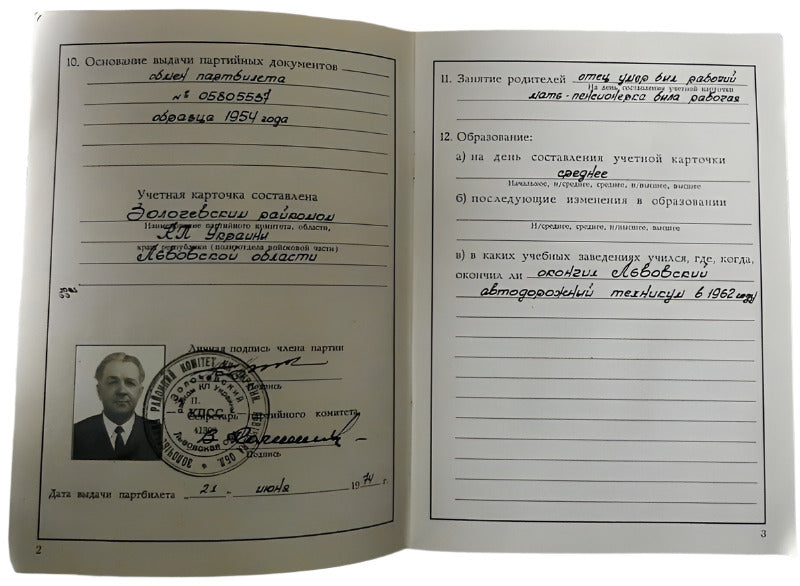 10. Основание выдачи партийных документов
обмен партбилета
№ 05805537
образца 1954 года
Учетная карточка составлена
Золочевским райкомом
Наименование партийного комитета, области,
КП Украины
края, республики (политотдела войсковой части)
Львовской области
Личная подпись члена партии
Подпись
П.
Секретарь партийного комитета
Подпись
РАЙОННИЙ КОМІТЕТ КП УКРАЇНИ
Золочевский
райком КП Украины
КПСС
41309
Львовской
ОБЛ.
Дата выдачи партбилета 21 июня 1974 г.
2
11. Занятие родителей отец умер был рабочий
На день составления учетной карточки
мать - пенсионерка была рабочая
12. Образование:
а) на день составления учетной карточки
среднее
Начальное, н/среднее, среднее, н/высшее, высшее
б) последующие изменения в образовании
Н/среднее, среднее, н/высшее, высшее
в) в каких учебных заведениях учился, где, когда,
окончил ли окончил Львовский
автодорожный техникум в 1962 году
3